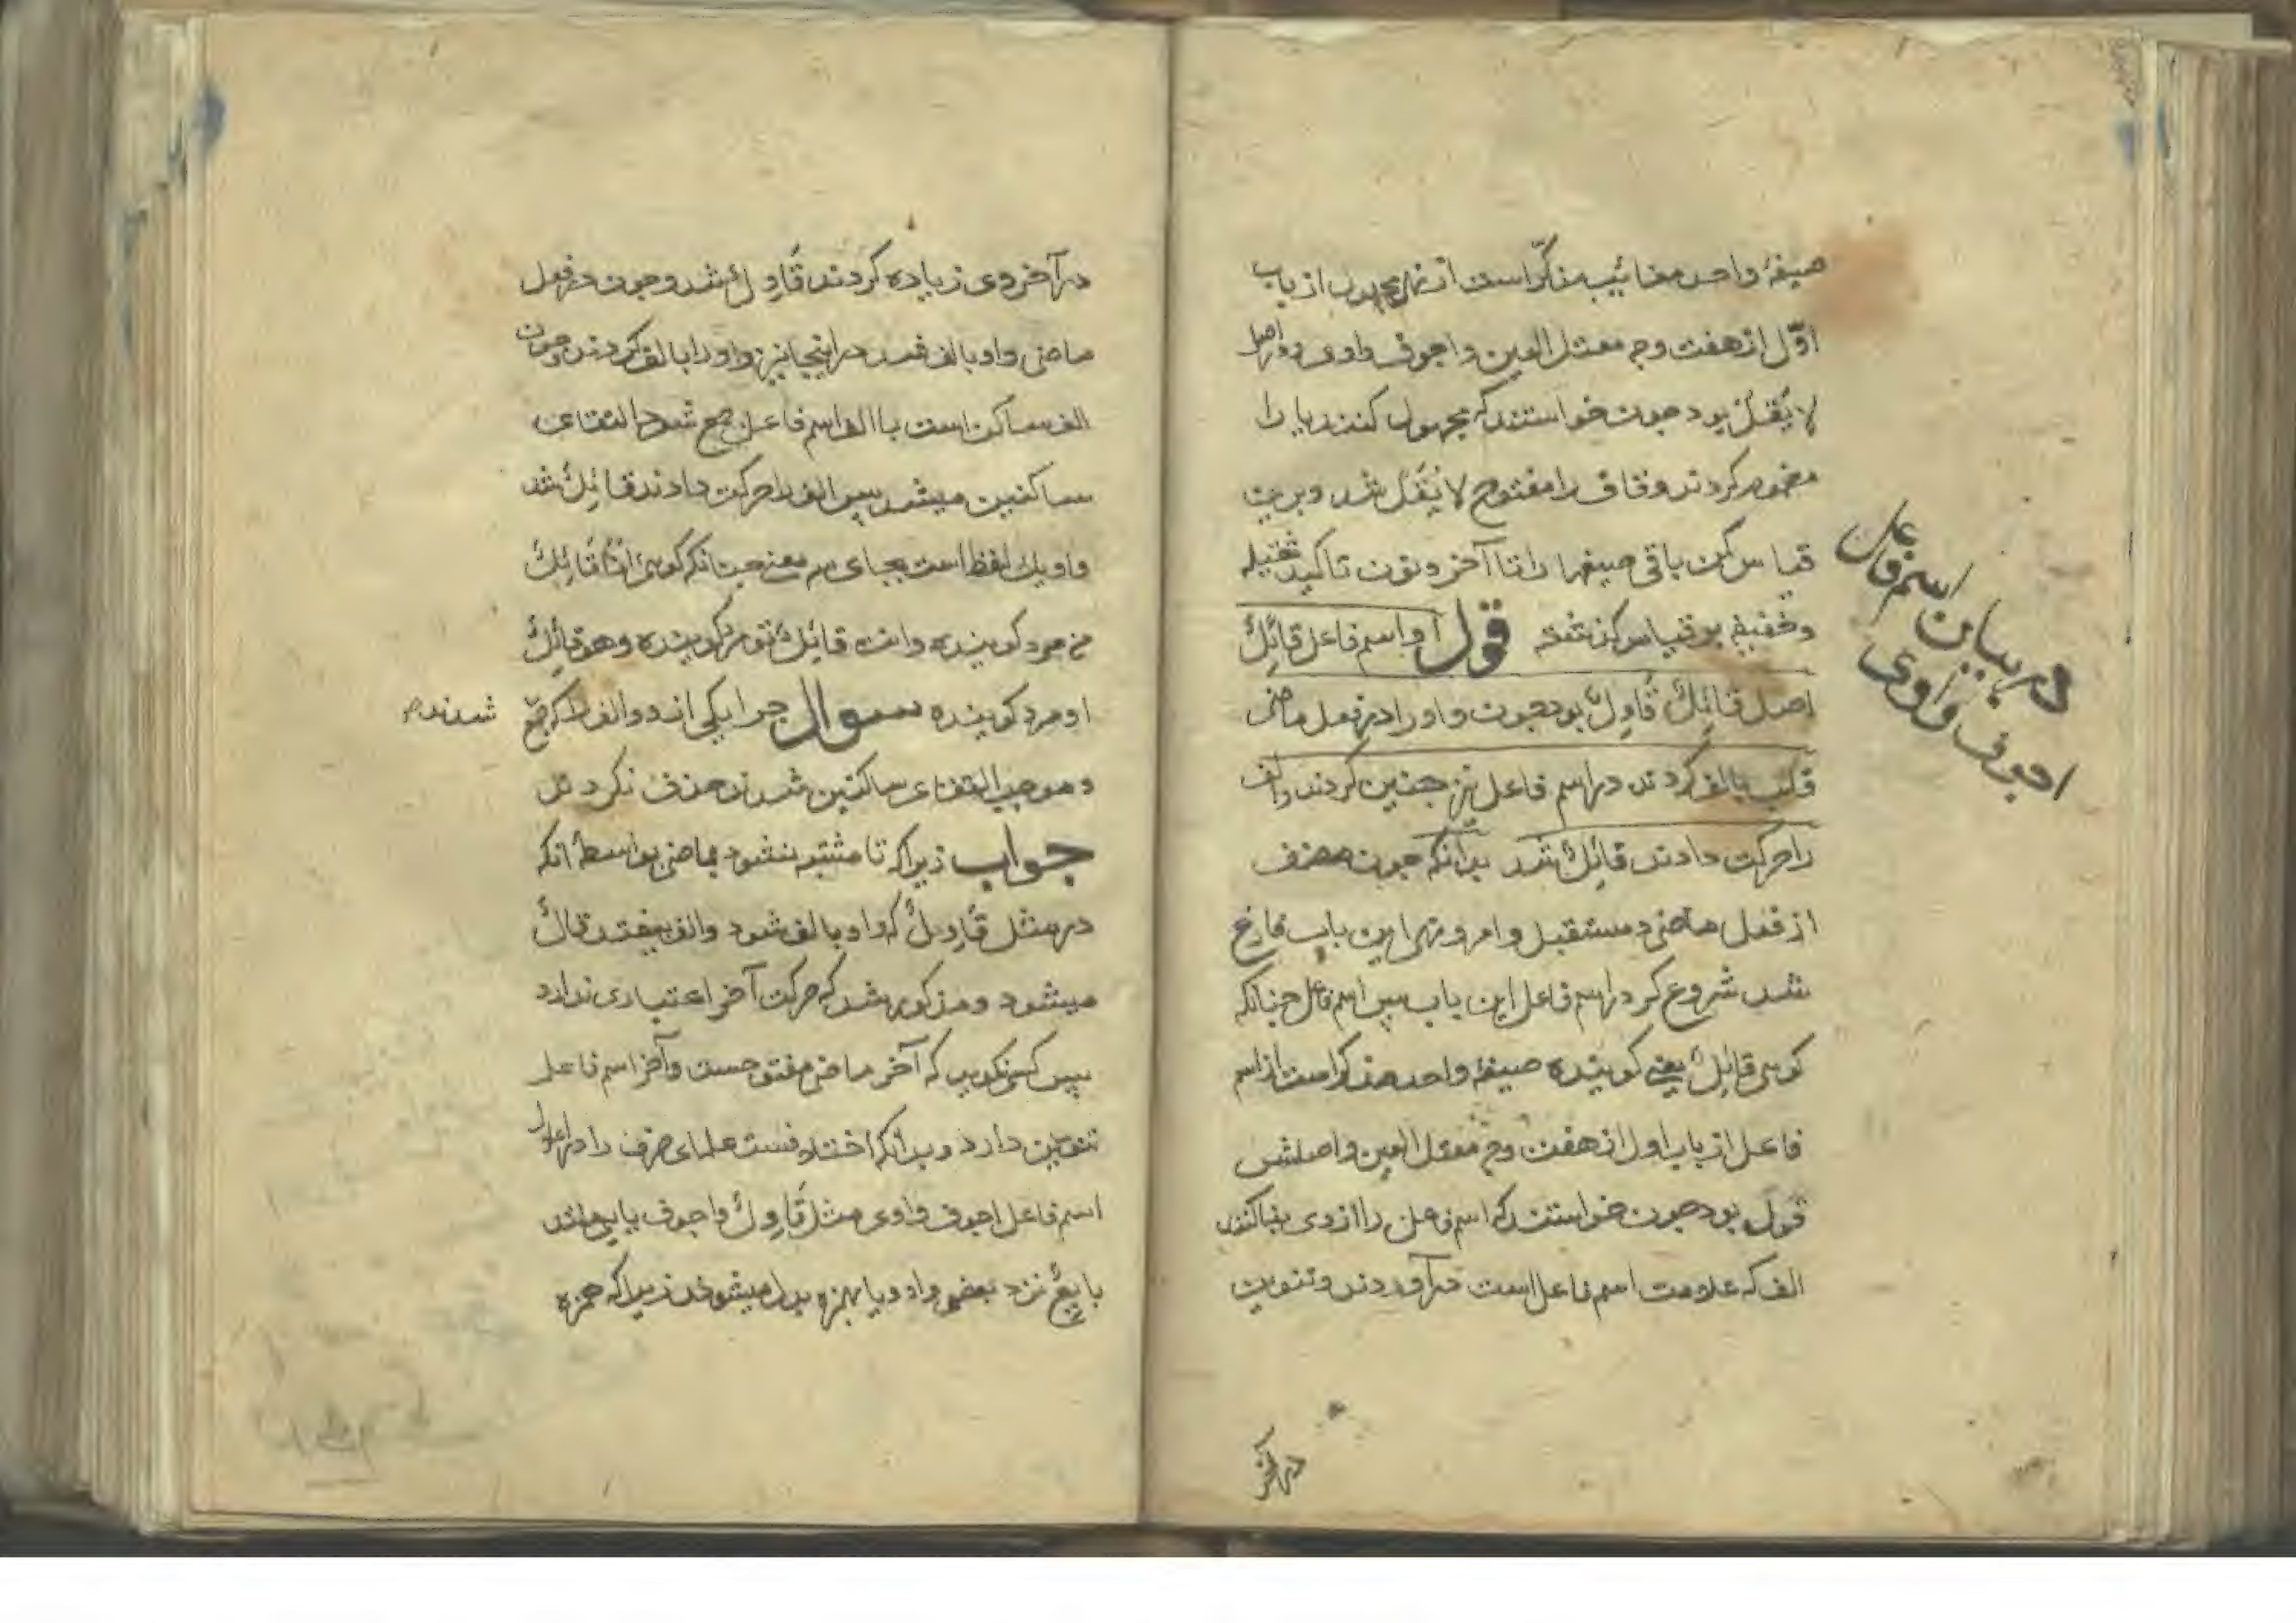 صیغهٔ واحد مغائب مذکّر است از نهی مجهول از باب
اوّل از هفت وجه معتل العین واجوف واوی در اصل
لا یُقَلْ بود جون خواستند که مجهول کنند یا را
مضموم کردند و قاف را مفتوح لا یُقَلْ شد و برین
قیاس کن باقی صیغها را تا آخر و نون تاکید ثقیله
وخفیفه بر قیاس کذشته قول او اسم فاعل قائِلٌ
اصل قائِلٌ قَاوِلٌ بود جون واو را در فعل ماضی
قلب بالف کردند در اسم فاعل نیز جنین کردند والف
را حرکت دادند قائِلٌ شد بدانکه جون مصنف
از فعل ماضی و مستقبل و امر و نهی این باب فارغ
شد شروع کرد در اسم فاعل این باب پس اسم فاعل جنانکه
کوئی قائِلٌ یعنی کوینده صیغهٔ واحد مذکر است از اسم
فاعل از باب اول از هفت وجه معتل العین واصلش
قول بود جون خواستند که اسم فاعل را از وی بنا کنند
الف که علامت اسم فاعل است درآوردند و تنوین
در آخر
در بیان اسم فاعل
اجوف واوی
در آخر وی زیاده کردند قَاوِلٌ شد و جون در فعل
ماضی واو بالف شد در اینجا نیز واو را با الف کردند و جون
الف ساکن است با الف اسم فاعل جمع شود التقاء
ساکنین میشد پس الف را حرکت دادند قائِلٌ شد
واو یک لفظ است بجای سه معنی جنانکه کوئی اَنَا قَائِلٌ
من مرد کوینده وانت قائِلٌ تو مرد کوینده وهو قائِلٌ
او مرد کوینده سوال جرا یکی از دو الف را که جمع
شدند
و موجب التقاء ساکنین شدند حذف نکردند
جواب زیرا که تا مشتبه نشود بماضی بواسطهٔ آنکه
در مثل قَاوِلٌ که واو بالف شود والف بیفتد قالٌ
میشود و مذکور شد که حرکت آخر اعتباری ندارد
پس کسی نکوید که آخر ماضی مفتوحست وآخر اسم فاعل
تنوین دارد و بدانکه اختلافست علمای صرف را در اعلال
اسم فاعل اجوف واوی مثل قَاوِلٌ واجوف یایی مانند
بایِعٌ نزد بعضی واو و یا بهمزه بدل میشوند زیرا که همزه